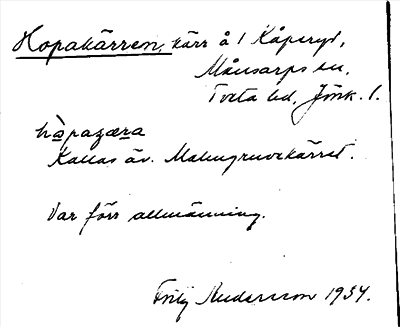 Hopakärren, kärr å 1 Kåperyd,
Månsarps sn,
Tveta hd, Jönk. l.
hòpaʒæra
Kallas äv. Malmgruvekärret.
Var förr allmänning.
Fritz Andersson 1934.